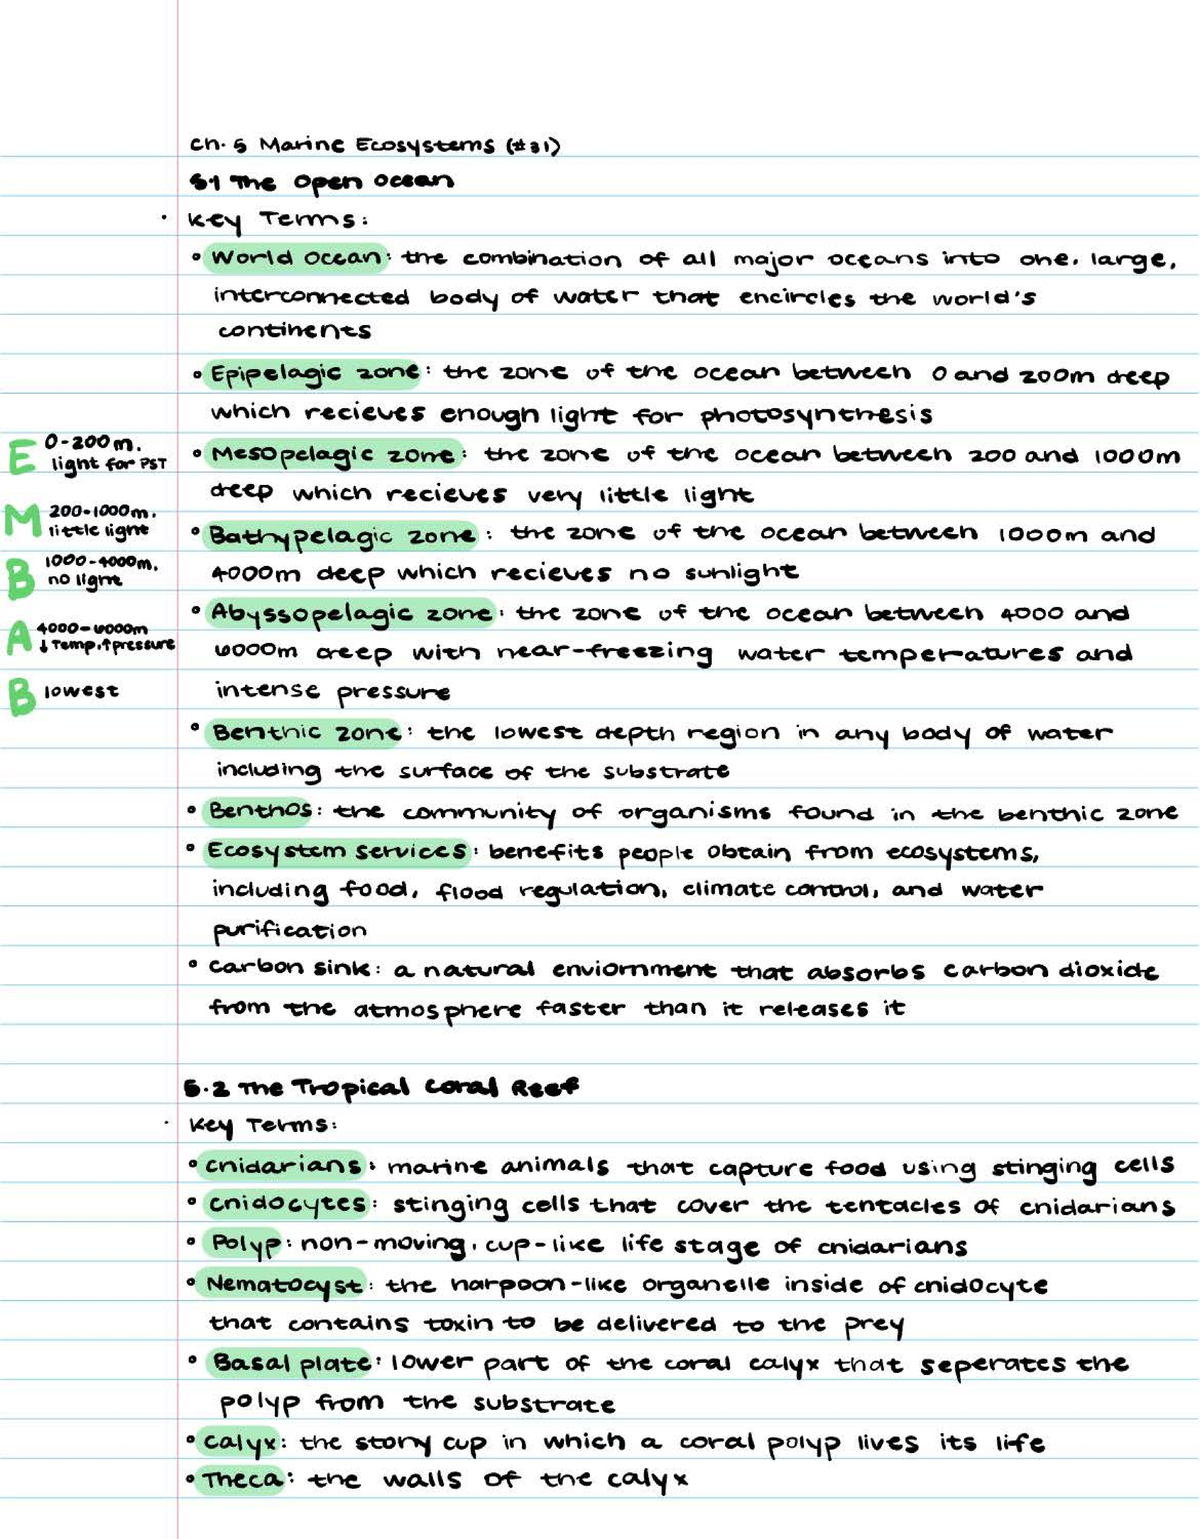 Ch. 5 Marine Ecosystems (#31)
5.1 The Open Ocean
· Key Terms:
• World Ocean: the combination of all major oceans into one, large,
interconnected body of water that encircles the world's
continents
• Epipelagic zone: the zone of the ocean between 0 and 200m deep
which recieves enough light for photosynthesis
E 0-200m.
light for PST
• Mesopelagic zone: the zone of the ocean between 200 and 1000m
deep which recieves very little light
M 200-1000m.
little light
• Bathypelagic zone: the zone of the ocean between 1000m and
4000m deep which recieves no sunlight
B 1000-4000m.
no light
• Abyssopelagic zone: the zone of the ocean between 4000 and
6000m deep with near-freezing water temperatures and
intense pressure
A 4000-6000m
↓Temp.↑pressure
B lowest
• Benthic zone: the lowest depth region in any body of water
including the surface of the substrate
• Benthos: the community of organisms found in the benthic zone
• Ecosystem services: benefits people obtain from ecosystems,
including food, flood regulation, climate control, and water
purification
• carbon sink: a natural enviornment that absorbs carbon dioxide
from the atmosphere faster than it releases it
5.2 The Tropical Coral Reef
· Key Terms:
• cnidarians: marine animals that capture food using stinging cells
• cnidocytes: stinging cells that cover the tentacles of cnidarians
• Polyp: non-moving, cup-like life stage of cnidarians
• Nematocyst: the harpoon-like organelle inside of cnidocyte
that contains toxin to be delivered to the prey
• Basal plate: lower part of the coral calyx that seperates the
polyp from the substrate
• Calyx: the stony cup in which a coral polyp lives its life
• Theca: the walls of the calyx